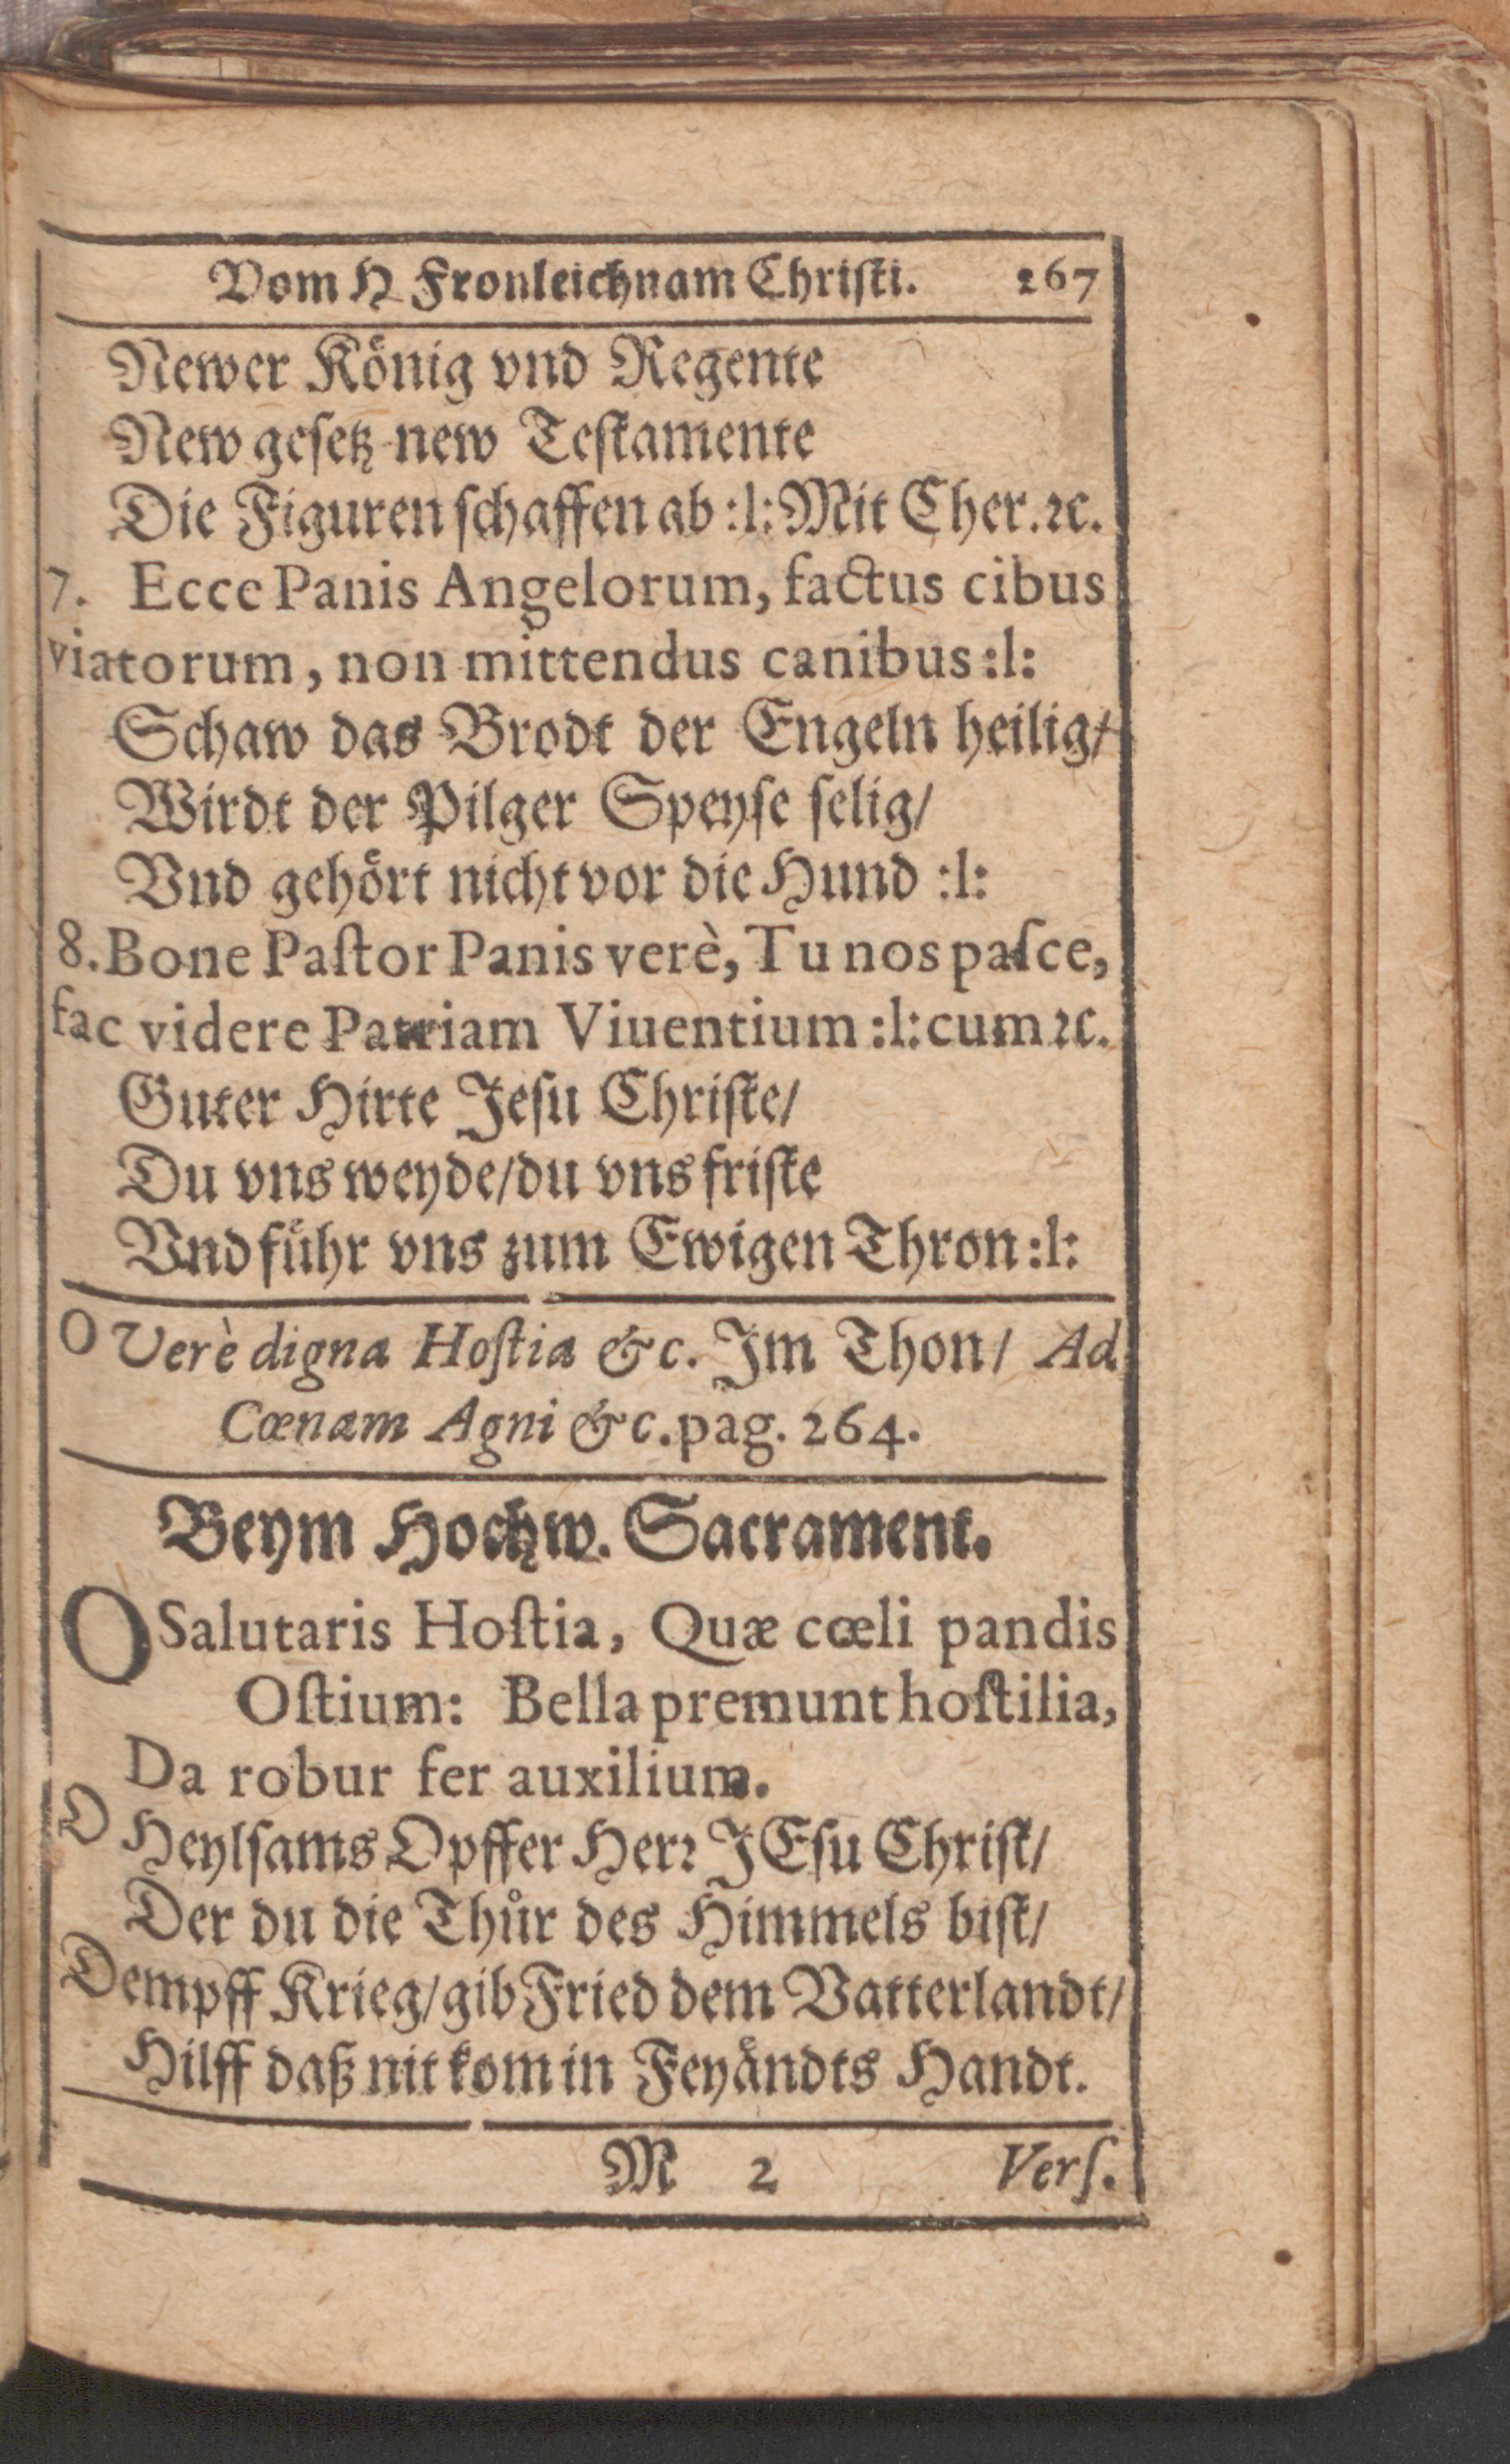 Vom H Fronleichnam Chriſti. 267
Newer König vnd Regente
New geſetz new Teſtamente
Die Figuren ſchaffen ab :l: Mit Cher. ꝛc.
7. Ecce Panis Angelorum, factus cibus
viatorum, non mittendus canibus :l:
Schaw das Brodt der Engeln heilig/
Wirdt der Pilger Speyſe ſelig/
Vnd gehört nicht vor die Hund :l:
8. Bone Paſtor Panis verè, Tu nos paſce,
fac videre Patriam Viuentium :l: cum ꝛc.
Guter Hirte Jeſu Chriſte/
Du vns weyde/du vns friſte
Vnd führ vns zum Ewigen Thron :l:
O Verè digna Hoſtia &c. Im Thon/ Ad
Cœnam Agni &c. pag. 264.
Beym Hochw. Sacrament.
O Salutaris Hoſtia, Quæ cœli pandis
Oſtium: Bella premunt hoſtilia,
Da robur fer auxilium.
O Heylſams Opffer Herꝛ JEſu Chriſt/
Der du die Thür des Himmels biſt/
Dempff Krieg/gib Fried dem Vatterlandt/
Hilff daß nit kom in Feyändts Handt.
M 2 Verſ.